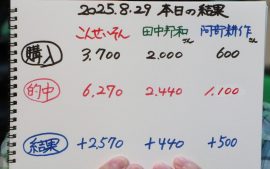 2025.8.29 本日の結果
こんせいそん 田中邦和さん 阿部耕作さん
購入 3,700 2,000 600
的中 6,270 2,440 1,100
結果 +2570 +440 +500